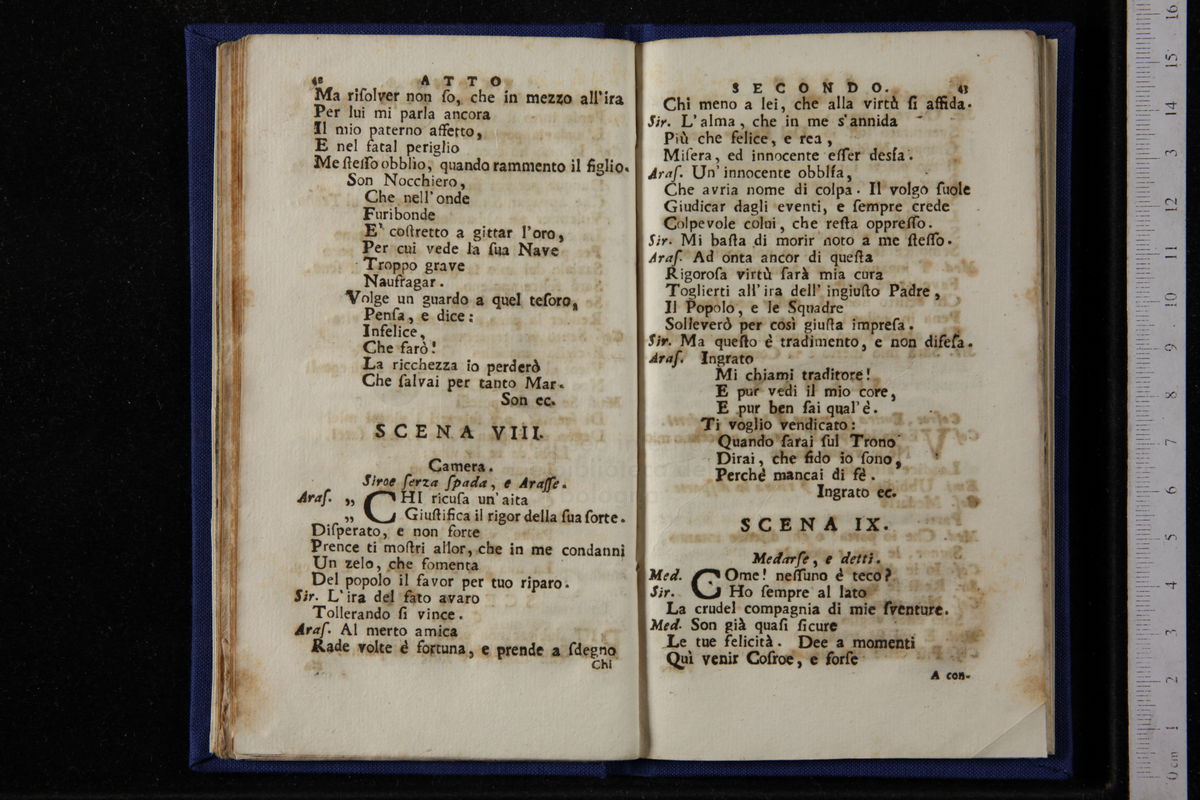 42 ATTO
Ma riſolver non ſo, che in mezzo all'ira
Per lui mi parla ancora
Il mio paterno affetto,
E nel fatal periglio
Me ſteſſo obblìo, quando rammento il figlio.
Son Nocchiero,
Che nell'onde
Furibonde
E' coſtretto a gittar l'oro,
Per cui vede la ſua Nave
Troppo grave
Naufragar.
Volge un guardo a quel teſoro,
Penſa, e dice:
Infelice,
Che farò!
La ricchezza io perderò
Che ſalvai per tanto Mar.
Son ec.
SCENA VIII.
Camera.
Siroe ſerza ſpada, e Araſſe.
Araſ. „ CHI ricuſa un'aita
„ Giuſtifica il rigor della ſua ſorte.
Diſperato, e non forte
Prence ti moſtri allor, che in me condanni
Un zelo, che fomenta
Del popolo il favor per tuo riparo.
Sir. L'ira del fato avaro
Tollerando ſi vince.
Araſ. Al merto amica
Rade volte è fortuna, e prende a ſdegno
Chi
SECONDO. 43
Chi meno a lei, che alla virtù ſi affida.
Sir. L'alma, che in me s'annida
Più che felice, e rea,
Miſera, ed innocente eſſer desía.
Araſ. Un'innocente obblía,
Che avria nome di colpa. Il volgo ſuole
Giudicar dagli eventi, e ſempre crede
Colpevole colui, che reſta oppreſſo.
Sir. Mi baſta di morir noto a me ſteſſo.
Araſ. Ad onta ancor di queſta
Rigoroſa virtù ſarà mia cura
Toglierti all'ira dell'ingiuſto Padre,
Il Popolo, e le Squadre
Solleverò per così giuſta impreſa.
Sir. Ma queſto è tradimento, e non difeſa.
Araſ. Ingrato
Mi chiami traditore!
E pur vedi il mio core,
E pur ben ſai qual'è.
Ti voglio vendicato:
Quando ſarai ſul Trono
Dirai, che fido io ſono,
Perchè mancai di fè.
Ingrato ec.
SCENA IX.
Medarſe, e detti.
Med. COme! neſſuno è teco?
Sir. Ho ſempre al lato
La crudel compagnia di mie ſventure.
Med. Son già quaſi ſicure
Le tue felicità. Dee a momenti
Quì venir Coſroe, e forſe
A con-